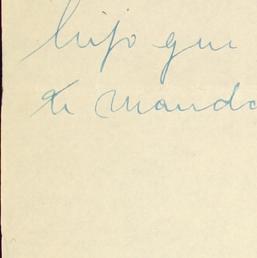 hijo que
te mando